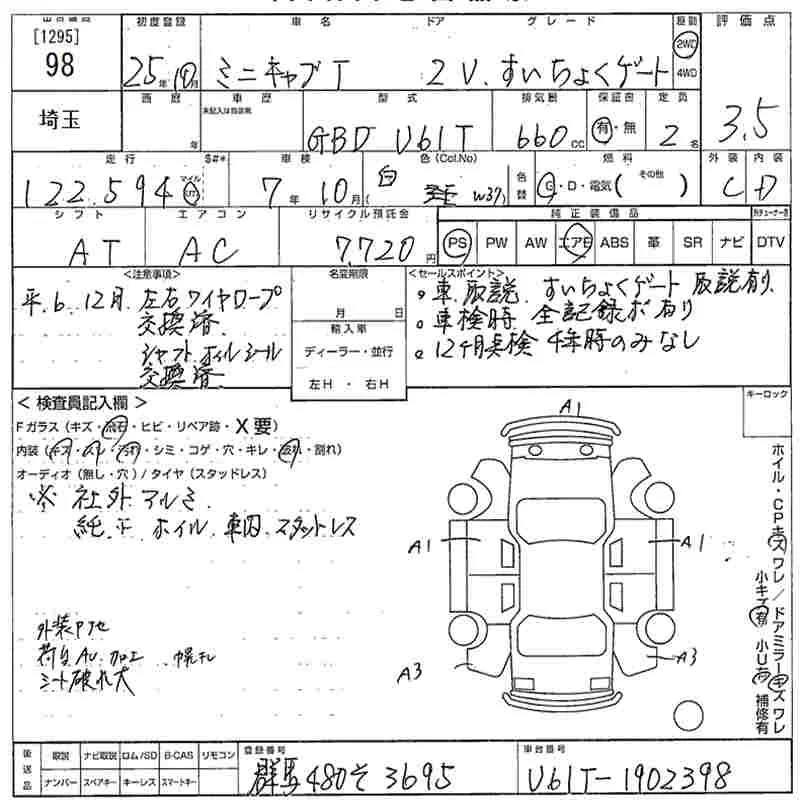 [1295]
98
埼玉
初度登録
25年10月
車名
ドア
グレード
ミニキャブT 2 V. すいちょくゲート
駆動
2WD
4WD
評価点
3.5
車歴
未記入は自家用
型式
GBD U61T
排気量
660 CC
保証書
有・無
定員
2名
走行
122,594
マイル
車検
7年10月
色(Col.No)
白
W37
色替
燃料
G・D・電気( その他 )
外装
C
内装
D
シフト
AT
エアコン
AC
リサイクル預託金
7,720円
純正装備品
PS PW AW エアB ABS 革 SR ナビ DTV
<注意事項>
平.6.12月 左右ワイヤロープ
交換済.
シャフト オイルシール
交換済
名変期限
月 日
輸入車
ディーラー・並行
左H ・ 右H
<セールスポイント>
車.取説. すいちょくゲート 取説有り.
車検時 全記録ボ有り
12ヶ月点検 4年時のみなし
キーロック
<検査員記入欄>
Fガラス(キズ・飛石・ヒビ・リペア跡・X要)
内装(キズ・スレ・汚れ・シミ・コゲ・穴・キレ・破れ・割れ)
オーディオ(無し・穴)/タイヤ(スタッドレス)
※ 社外アルミ
純正ホイル 車内 スタットレス
荷台 AU. 加工
シート破れ大
A1
A1
A1
A3
A3
ホイル・CPキズワレ/ドアミラーキズワレ
小キズ有 小U有 補修有
後送品
取説 ナビ取説 ロム/SD B-CAS リモコン
ナンバー スペアキー キーレス スマートキー
登録番号
群馬 480 そ 3695
車台番号
U61T-1902398